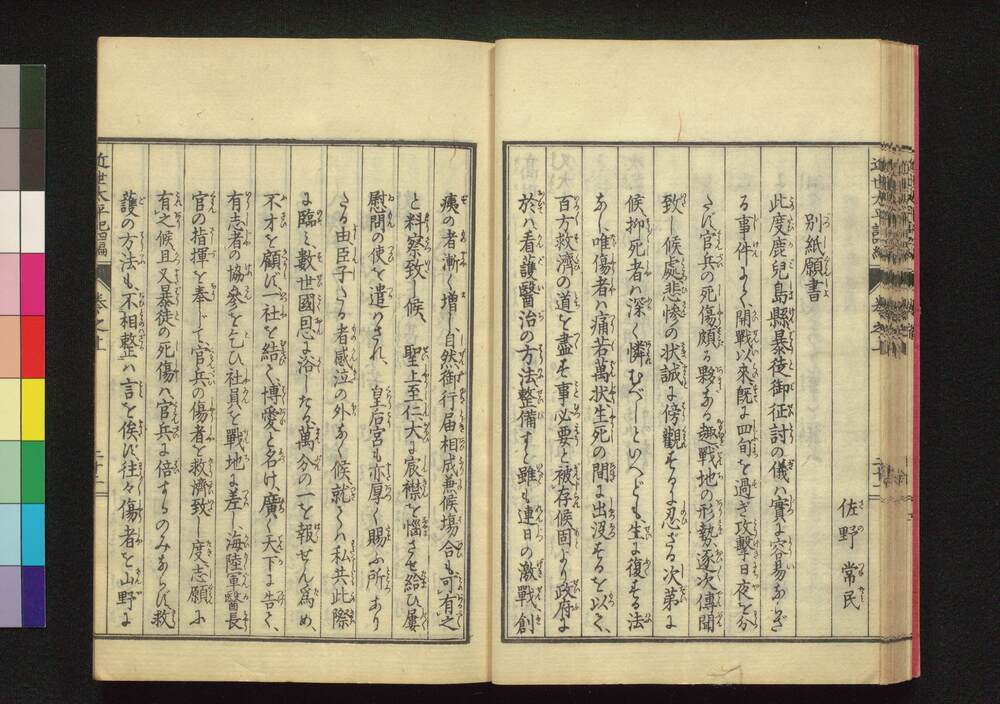 佐野常民
別紙願書
此度鹿兒島縣暴徒御征討の儀ハ實に容易ならざ
る事件にして、開戰以來既に四旬を過ぎ攻擊日夜を分
たず官兵の死傷頗る夥きある趣戰地の形勢逐次傳聞
致し候處悲慘の状誠に傍觀するに忍ざる次第に
候抑死者ハ深く憐むべしといへども生に復する法
なし唯傷者ハ痛苦萬状生死の間に出没するを以て、
百方救濟の道を盡す事必要と被存候固より政府に
於ハ看護醫治の方法整備すと雖も連日の激戰、創
痍の者漸く増し、自然御行届相成兼候塲合も可有之
と料察致し候、聖上至仁大に宸襟を惱させ給ひ屢
慰問の使を遣ハされ、皇后宮も亦厚く賜ふ所あり
たる由臣子たる者感泣の外なく候就てハ私共此際
に臨ミ、數世國恩に浴したる萬分の一を報ぜん爲め、
不才を顧ず一社を結て、博愛と名け、廣く天下に告て、
有志者の協參を乞ひ社員を戰地に差し、海陸軍醫長
官の指揮を奉じて、官兵の傷者を救濟致し度志願に
有之候、且又暴徒の死傷ハ官兵に倍するのみならず、救
護の方法も、不相整ハ言を俟ず、往々傷者を山野に
近世太平記四編
卷之十
二十二